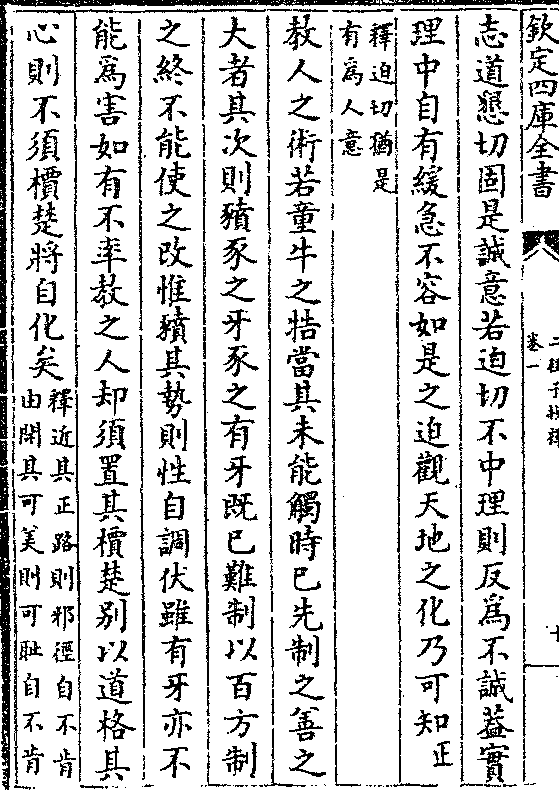 欽定四庫全書
卷一
二程子抄釋
十
志道懇切固是誠意若迫切不中理則反為不誠葢實
理中自有緩急不容如是之迫觀天地之化乃可知正
釋迫切猶是
有為人意
教人之術若童牛之牿當其未能觸時已先制之善之
大者其次則豶豕之牙豕之有牙既已難制以百方制
之終不能使之改惟豶其勢則性自調伏雖有牙亦不
能為害如有不率教之人却須置其檟楚别以道格其
心則不須檟楚將自化矣
釋近其正路則邪徑自不肯
由開其可美則可耻自不肯